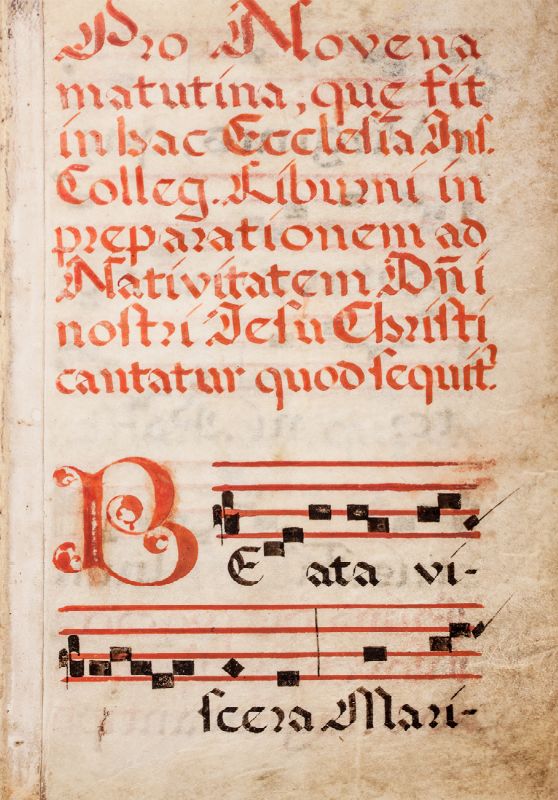 Pro Novena
matutina, quę fit
in hac Ecclesia Ins.
Colleg. Liburni in
preparationem ad
Nativitatem Dn̄i
nostri Jesu Christi
cantatur quod sequit.ʳ
BEata vi-
scera Mari-